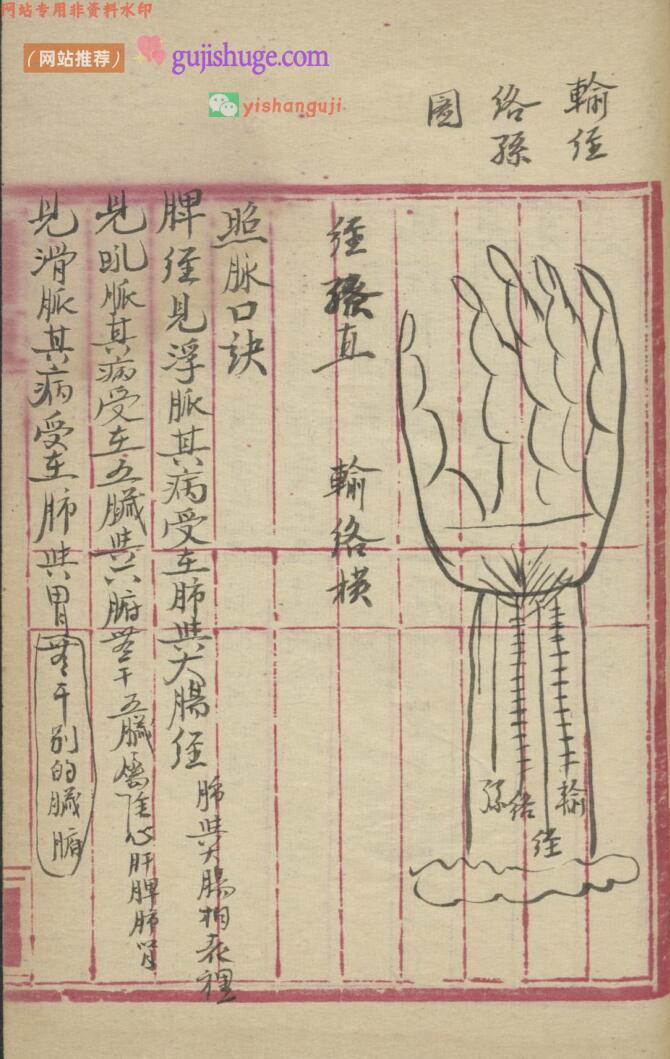 网站专用非资料水印
（网站推荐）
gujishuge.com
yishanguji
輸经
络孫
圖
孫
络
经
輸
经孫直 輸络横
照脉口訣
脾径見浮脈其病受在肺与大腸径
肺与大腸相表裡
見
脈其病受在五臟
六腑
干五臟
心肝脾肺腎
見滑脈其病受在肺
胃
干别的臟腑